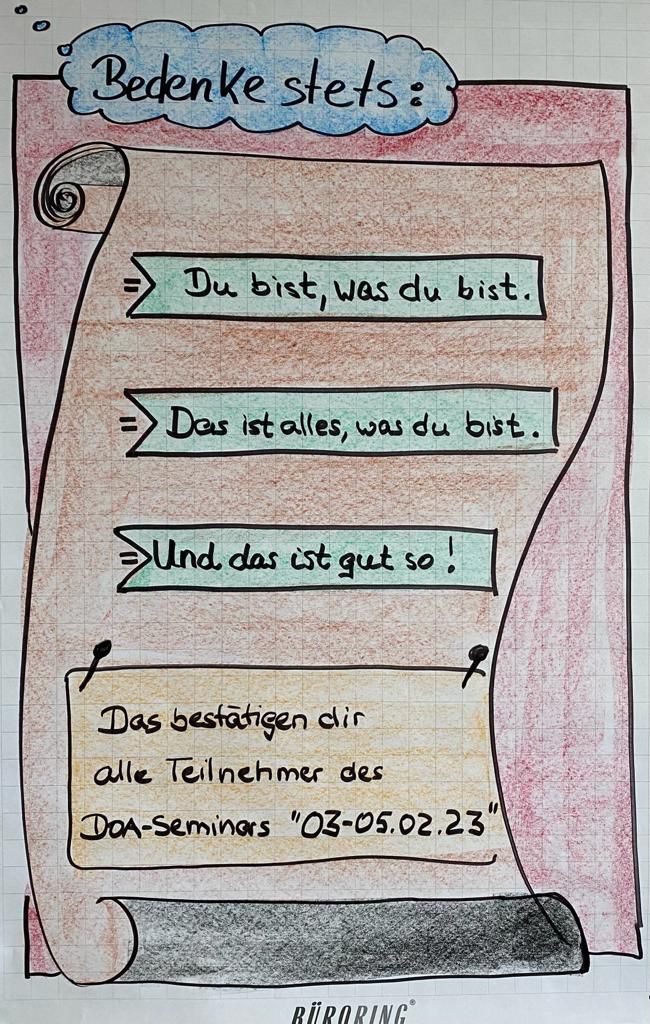 Bedenke stets:
= Du bist, was du bist.
= Das ist alles, was du bist.
= Und das ist gut so!
Das bestätigen dir
alle Teilnehmer des
DOA-Seminars "03-05.02.23"
BÜRORING®